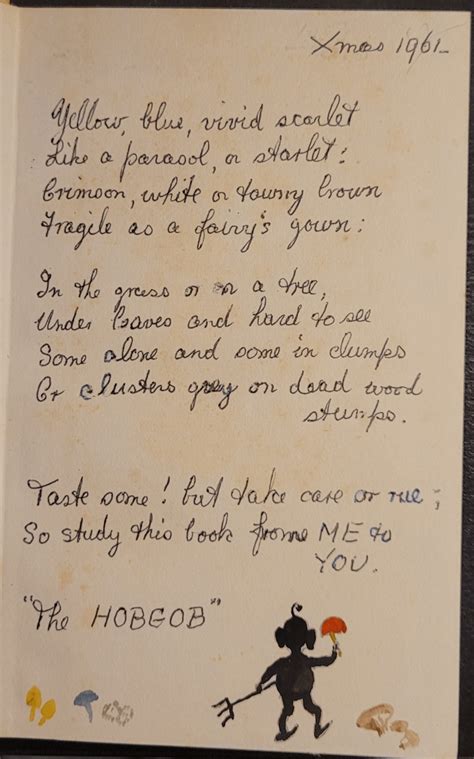 Xmas 1961
Yellow, blue, vivid scarlet
Like a parasol, or starlet:
Crimson, white or tawny brown
Fragile as a fairy's gown:
In the grass or on a tree,
Under leaves and hard to see
Some alone and some in clumps
Or clusters grey on dead wood
stumps.
Taste some! but take care or rue;
So study this book frome ME to
YOU.
"The HOBGOB"